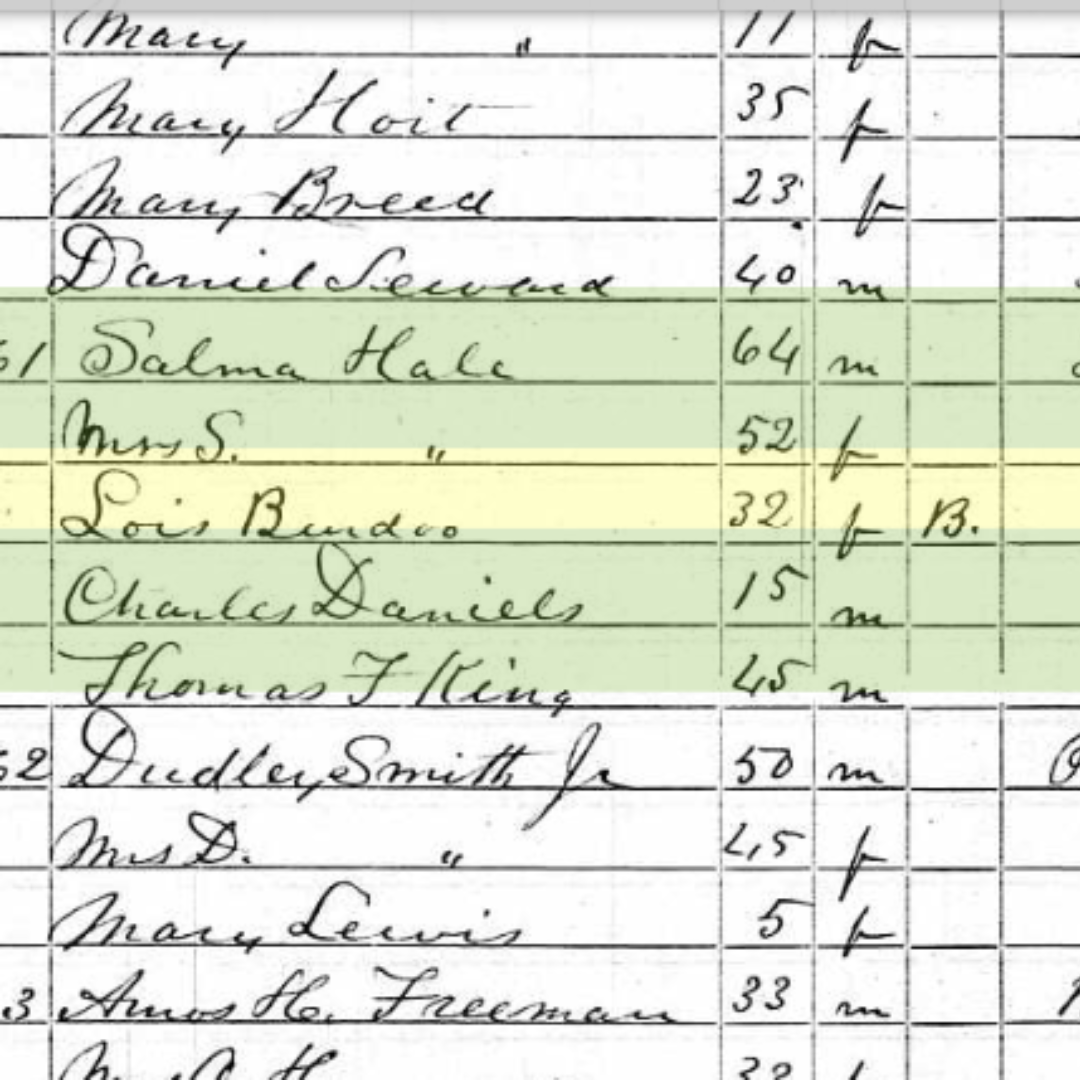 Mary " 11 f
Mary Hoit 35 f
Mary Breed 23 f
Daniel Seward 40 m
61 Salma Hale 64 m
Mrs S. " 52 f
Lois Burdoo 32 f B.
Charles Daniels 15 m
Thomas F King 45 m
62 Dudley Smith Jr 50 m
Mrs D. " 45 f
Mary Lewis 5 f
3 Amos H. Freeman 33 m